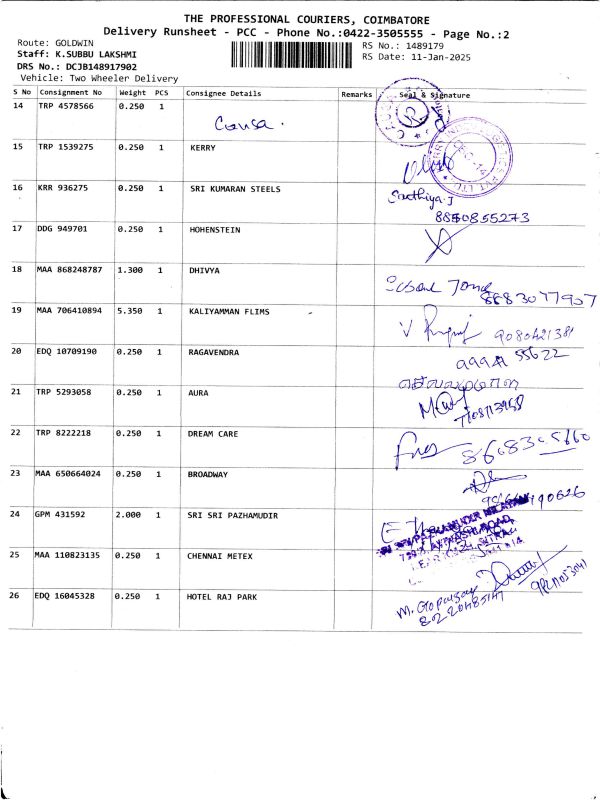 THE PROFESSIONAL COURIERS, COIMBATORE
Delivery Runsheet - PCC - Phone No.:0422-3505555 - Page No.:2
Route: GOLDWIN
RS No.: 1489179
Staff: K.SUBBU LAKSHMI
RS Date: 11-Jan-2025
DRS No.: DCJB148917902
Vehicle: Two Wheeler Delivery
S No Consignment No Weight PCS Consignee Details Remarks Seal & Signature
14 TRP 4578566 0.250 1
15 TRP 1539275 0.250 1 KERRY
16 KRR 936275 0.250 1 SRI KUMARAN STEELS Sadhiya.J
8870855273
17 DDG 949701 0.250 1 HOHENSTEIN
18 MAA 868248787 1.300 1 DHIVYA
8883077907
19 MAA 706410894 5.350 1 KALIYAMMAN FLIMS
9080421381
20 EDQ 10709190 0.250 1 RAGAVENDRA 99941 55622
21 TRP 5293058 0.250 1 AURA
22 TRP 8222218 0.250 1 DREAM CARE 8608305660
23 MAA 650664024 0.250 1 BROADWAY
24 GPM 431592 2.000 1 SRI SRI PAZHAMUDIR
25 MAA 110823135 0.250 1 CHENNAI METEX
26 EDQ 16045328 0.250 1 HOTEL RAJ PARK M. Gopalsamy
8220485147